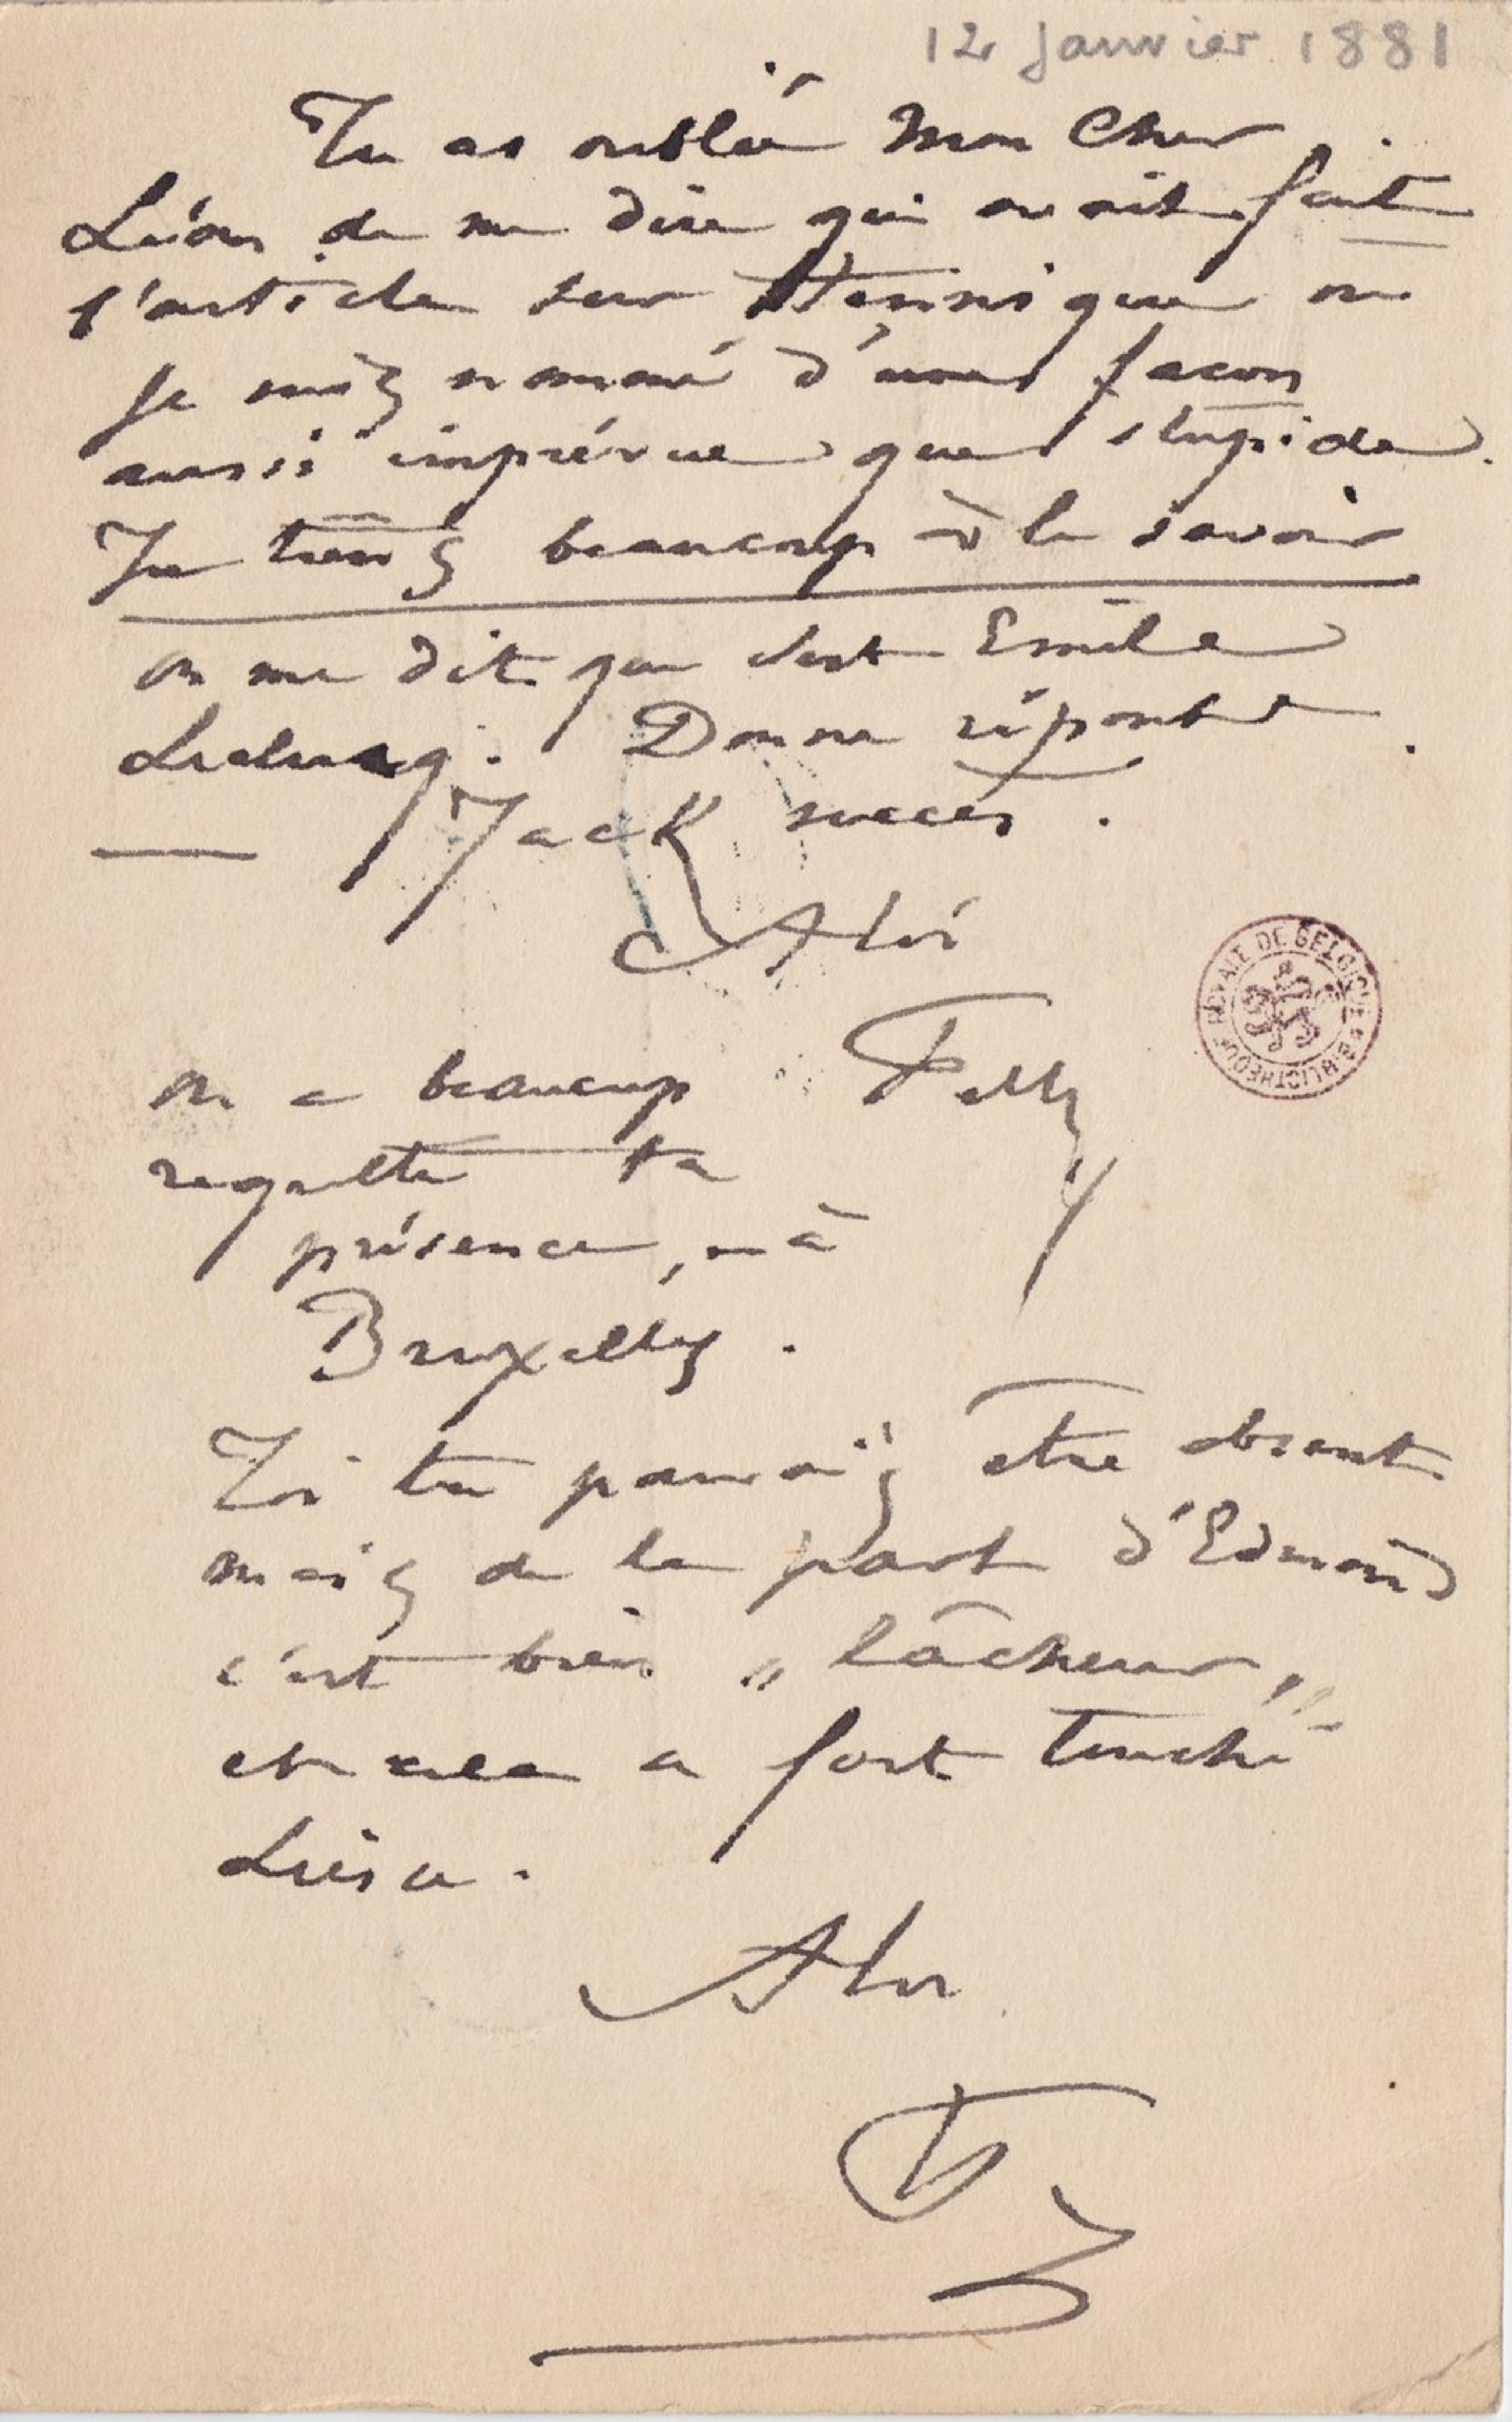 12 Janvier 1881
Tu as oublié Mon Cher
Léon de me dire qui avait fait
l'article sur Hennique où
je suis nommé d'une façon
aussi imprévue que stupide.
Je tiens beaucoup à le savoir
on me dit que c'est Emile
Leclercq. Donne réponse
Jack succès.
A toi
Fély
on a beaucoup
regretté ta
présence, à
Bruxelles.
Toi tu pouvais être absent
mais de la part d'Edmond
c'est bien „ lâcheur „
et cela a fort touché
Liésse.
A toi
BIBLIOTHÈQUE ROYALE DE BELGIQUE